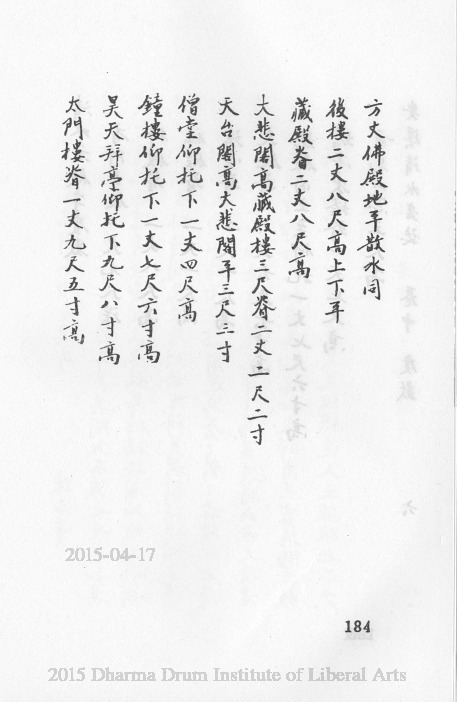 方丈佛殿地平散水同
後樓二丈八尺高上下平
藏殿脊二丈八尺高
大悲閣高藏殿樓三尺脊二丈二尺二寸
天台閣高大悲閣平三尺三寸
僧堂仰托下一丈四尺高
鐘樓仰托下一丈七尺六寸高
昊天拜亭仰托下九尺八寸高
太門樓脊一丈九尺五寸高
2015-04-17
184
2015 Dharma Drum Institute of Liberal Arts